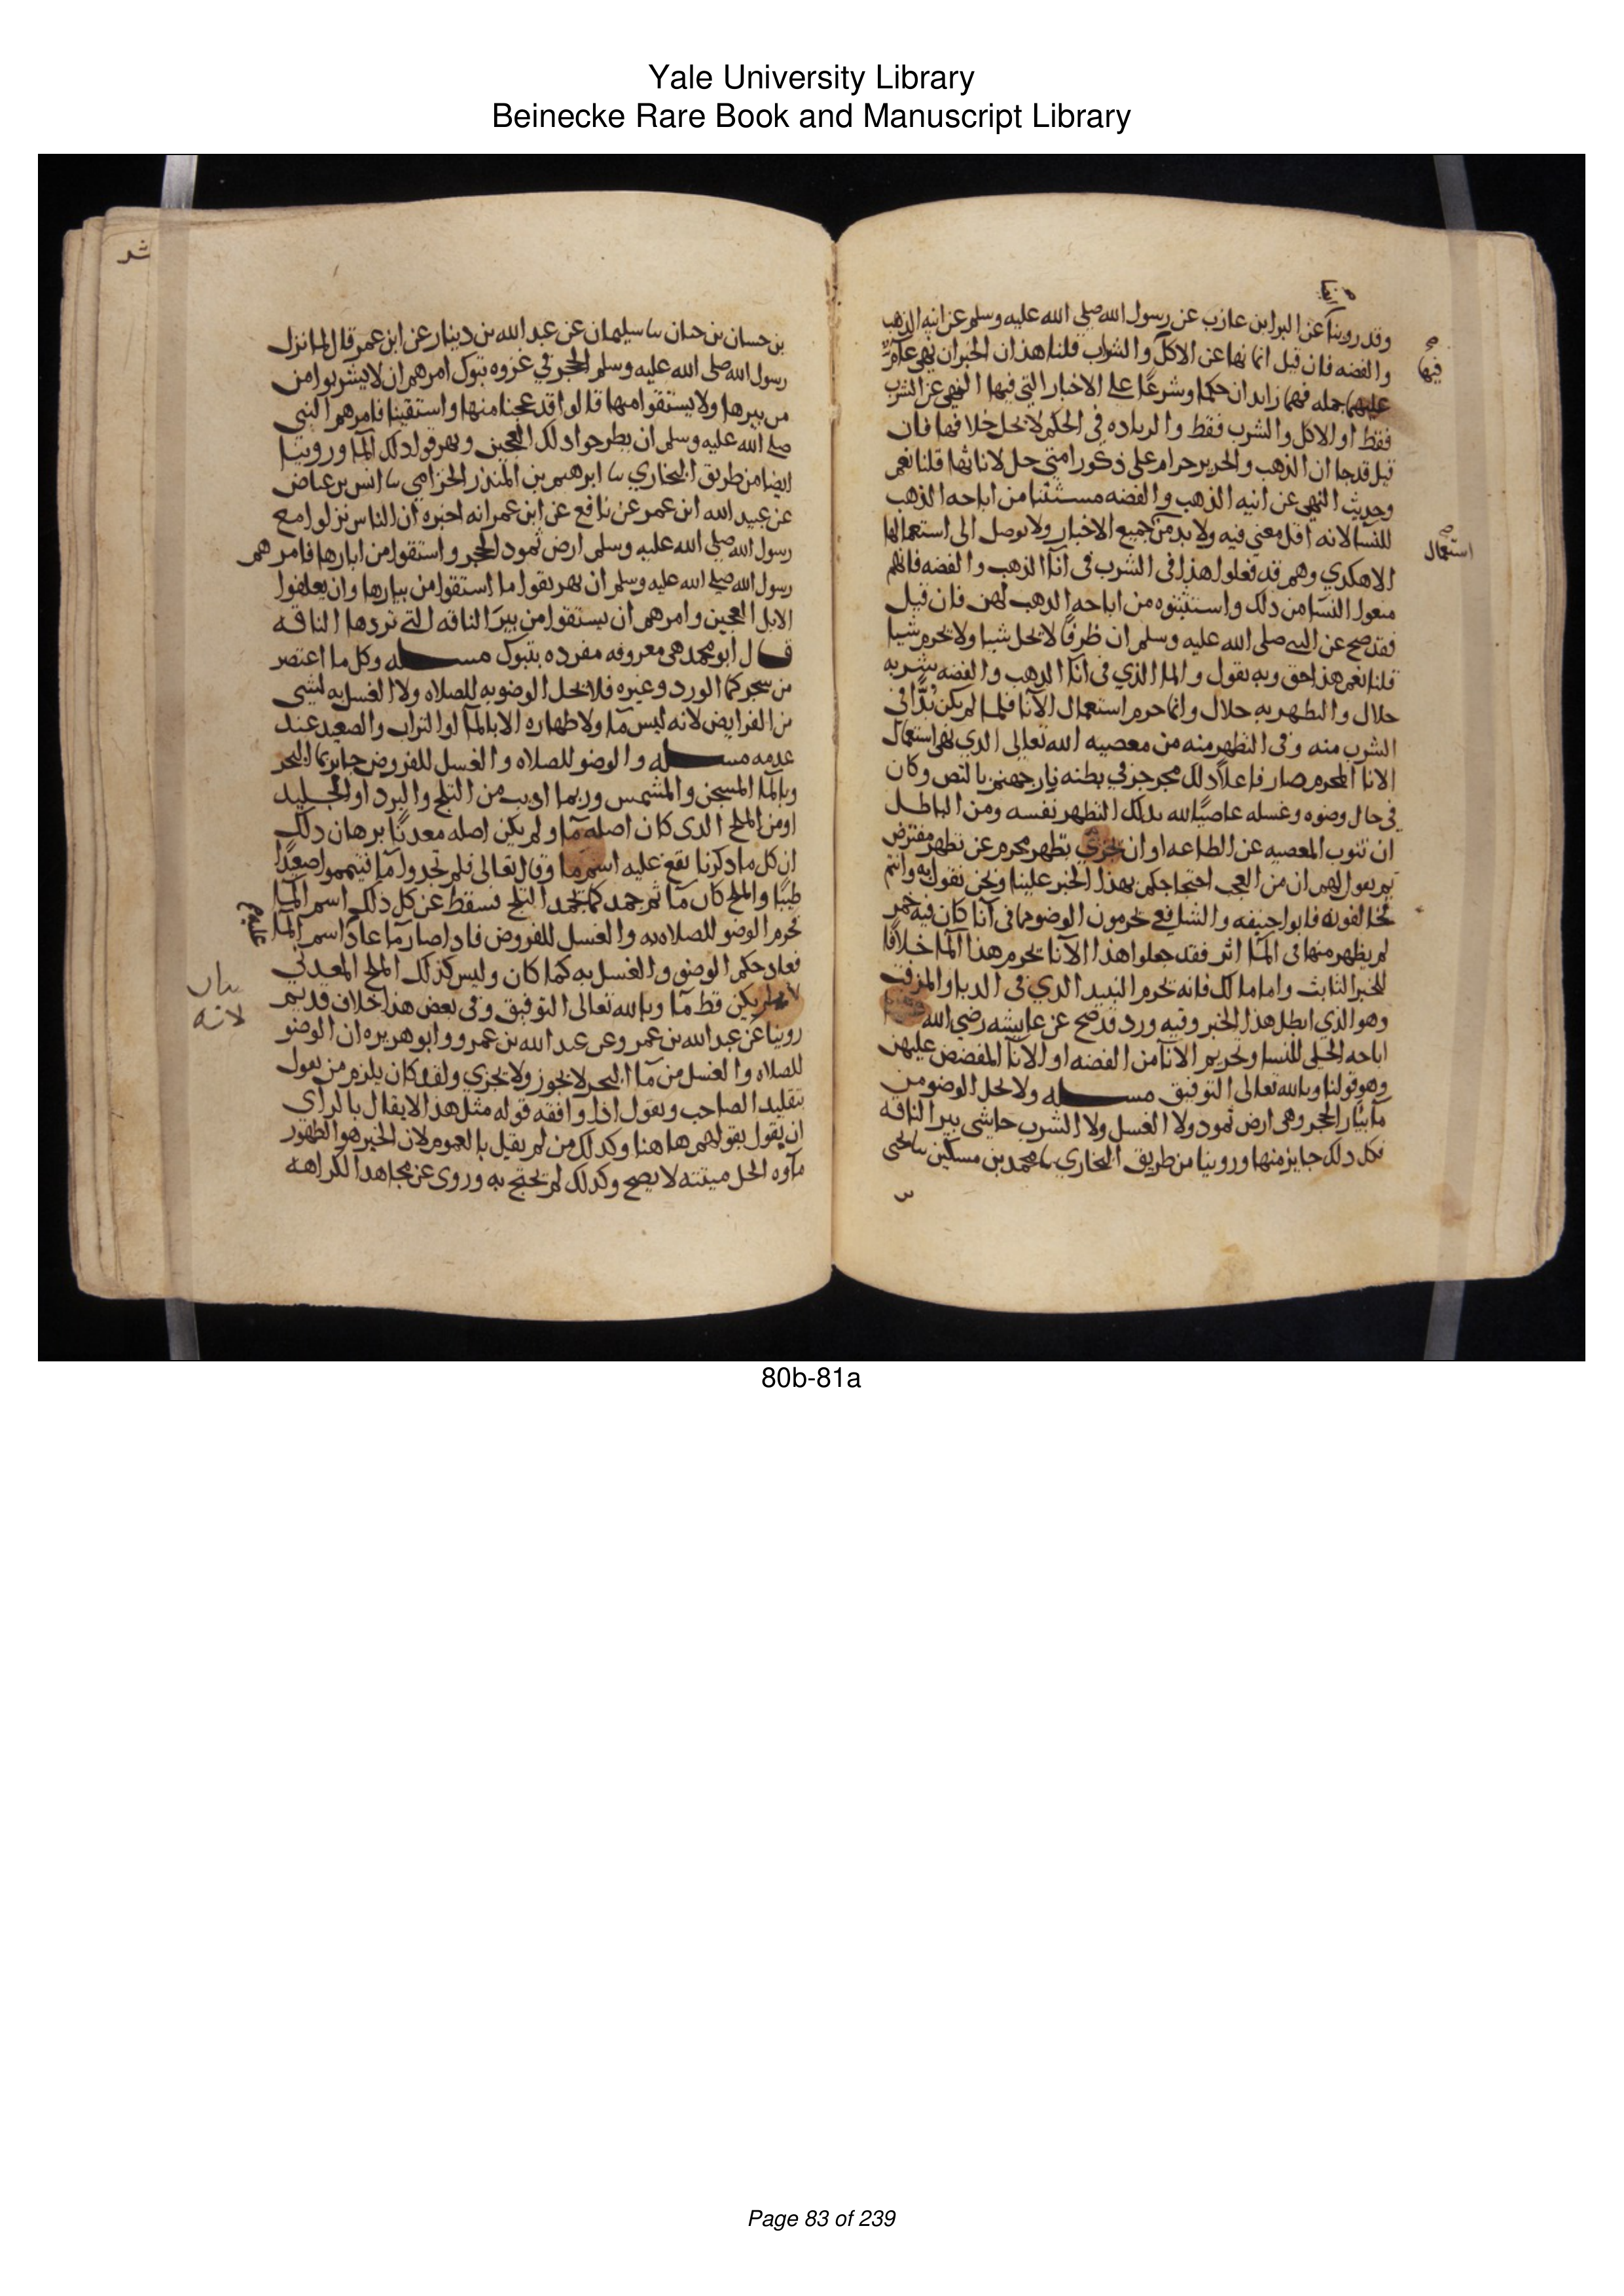 Yale University Library
Beinecke Rare Book and Manuscript Library
وقد روينا عن البرا بن عازب عن رسول الله صلى الله عليه وسلم عن انيه الذهب
والفضه فان قيل انما نها عن الاكل والشراب قلنا هذان الخبران نهي عام
فيها
جمله فهما زايدان حكما وشرعا على الاخبار التي فيها النهي عن الشرب
فقط او الاكل والشرب فقط والزياده في الحكم لا يحل خلافها فان
قيل قد جا ان الذهب والحرير حرام على ذكور امتي حل لاناثها قلنا نعم
وحديث النهي عن انيه الذهب والفضه مستثنا من اباحه الذهب
للنسا لانه اقل معنى فيه ولا بد من جميع الاخبار ولا يوصل الى استعمالها
استعمال
الا هكذي وهم قد فعلوا هذا في الشرب في انا الذهب والفضه فانهم
منعوا النسا من ذلك واستثنوه من اباحه الذهب لهن فان قيل
فقد صح عن النبي صلى الله عليه وسلم ان ظرفا لا يحل شيا ولا يحرم شيا
قلنا نعم هذا حق وبه نقول والما الذي في انا الذهب والفضه شربه
حلال والتطهر به حلال وانما حرم استعمال الانا فلما لم يكن بدا في
الشرب منه وفي التطهر منه من معصيه الله تعالى الذي نهى استعمال
الانا المحرم صار فاعلا ذلك مجرجر في بطنه نار جهنم بالنص وكان
في حال وضوه وغسله عاصيا لله بذلك التطهر نفسه ومن الباطل
ان تنوب المعصيه عن الطاعه او ان يجزي تطهر محرم عن تطهر مفترض
ثم نقول لهم ان من العجب احتجاجكم بهذا الخبر علينا ونحن نقول به وانتم
تخالفونه فابو حنيفه والشافعي يحرمون الوضو بما في انا كان فيه خمر
لم يظهر منها في الما اثر فقد جعلوا هذا الانا يحرم هذا الما خلافا
للخبر الثابت واما مالك فانه يحرم النبيذ الذي في الدبا والمزفت
وهو الذي ابطل هذا الخبر وفيه ورد وقد صح عن عايشه رضي الله
اباحه الحلى للنسا وتحريم الانا من الفضه او الانا المفضض عليهن
وهو قولنا وبالله تعالى التوفيق مسله ولا يحل الوضو من
ما بيار الحجر وهي ارض ثمود ولا الغسل ولا الشرب حاشى بير الناقه
فكل ذلك جايز منها وروينا من طريق البخاري نا محمد بن مسكين نا يحيى
بن حسان بن حيان نا سليمان عن عبد الله بن دينار عن ابن عمر قال لما نزل
رسول الله صلى الله عليه وسلم الحجر في غزوه تبوك امرهم ان لا يشربوا من
من بيرها ولا يستقوا منها قالوا قد عجنا منها واستقينا فامرهم النبي
صلى الله عليه وسلم ان يطرحوا ذلك العجين ويهرقوا ذلك الما وروينا
ايضا من طريق البخاري نا ابرهيم بن المنذر الحزامي نا انس بن عياض
عن عبيد الله ابن عمر عن نافع عن ابن عمر انه اخبره ان الناس نزلوا مع
رسول الله صلى الله عليه وسلم ارض ثمود الحجر واستقوا من ابارها فامرهم
رسول الله صلى الله عليه وسلم ان يهريقوا ما استقوا من بيارها وان يعلفوا
الابل العجين وامرهم ان يستقوا من بير الناقه التي تردها الناقه
قال ابو محمد هي معروفه مفرده بتبوك مسله وكل ما اعتصر
من شجر كما الورد وغيره فلا يحل الوضو به للصلاه ولا الغسل به لشي
من الفرايض لانه ليس ما ولا طهاره الا بالما او التراب والصعيد عند
عدمه مسله والوضو للصلاه والغسل للفروض جايز بما البحر
وبالما المسخن والمشمس وربما اذيب من الثلج والبرد او الجليد
او من الملح الذي كان اصله ما ولم يكن اصله معدنا برهان ذلك
ان كل ما ذكرنا يقع عليه اسم ما وقال تعالى فلم تجدوا ما فتيمموا صعيدا
طيبا والملح كان ما ثم جمد كما يجمد الثلج فسقط عن كل ذلك اسم الما
فحرم الوضو للصلاه به والغسل للفروض فاذا صار ما عاد اسم الما
عليه
فعاد حكم الوضو والغسل به كما كان وليس كذلك الملح المعدني
لانه
لم يكن قط ما وبالله تعالى التوفيق وفي بعض هذا خلاف قديم
روينا عن عبد الله بن عمر وعن عبد الله بن عمرو وابو هريره ان الوضو
للصلاه والغسل من ما البحر لا يجوز ولا يجزي ولقد كان يلزم من يقول
بتقليد الصاحب ويقول اذا وافقه قوله مثل هذا لا يقال بالراي
ان يقول بقولهم هاهنا وكذلك من لم يقيل بالعموم لان الخبر هو الطهور
ماوه الحل ميتته لا يصح وكذلك لم يحتج به وروى عن مجاهد الكراهه
80b-81a
Page 83 of 239